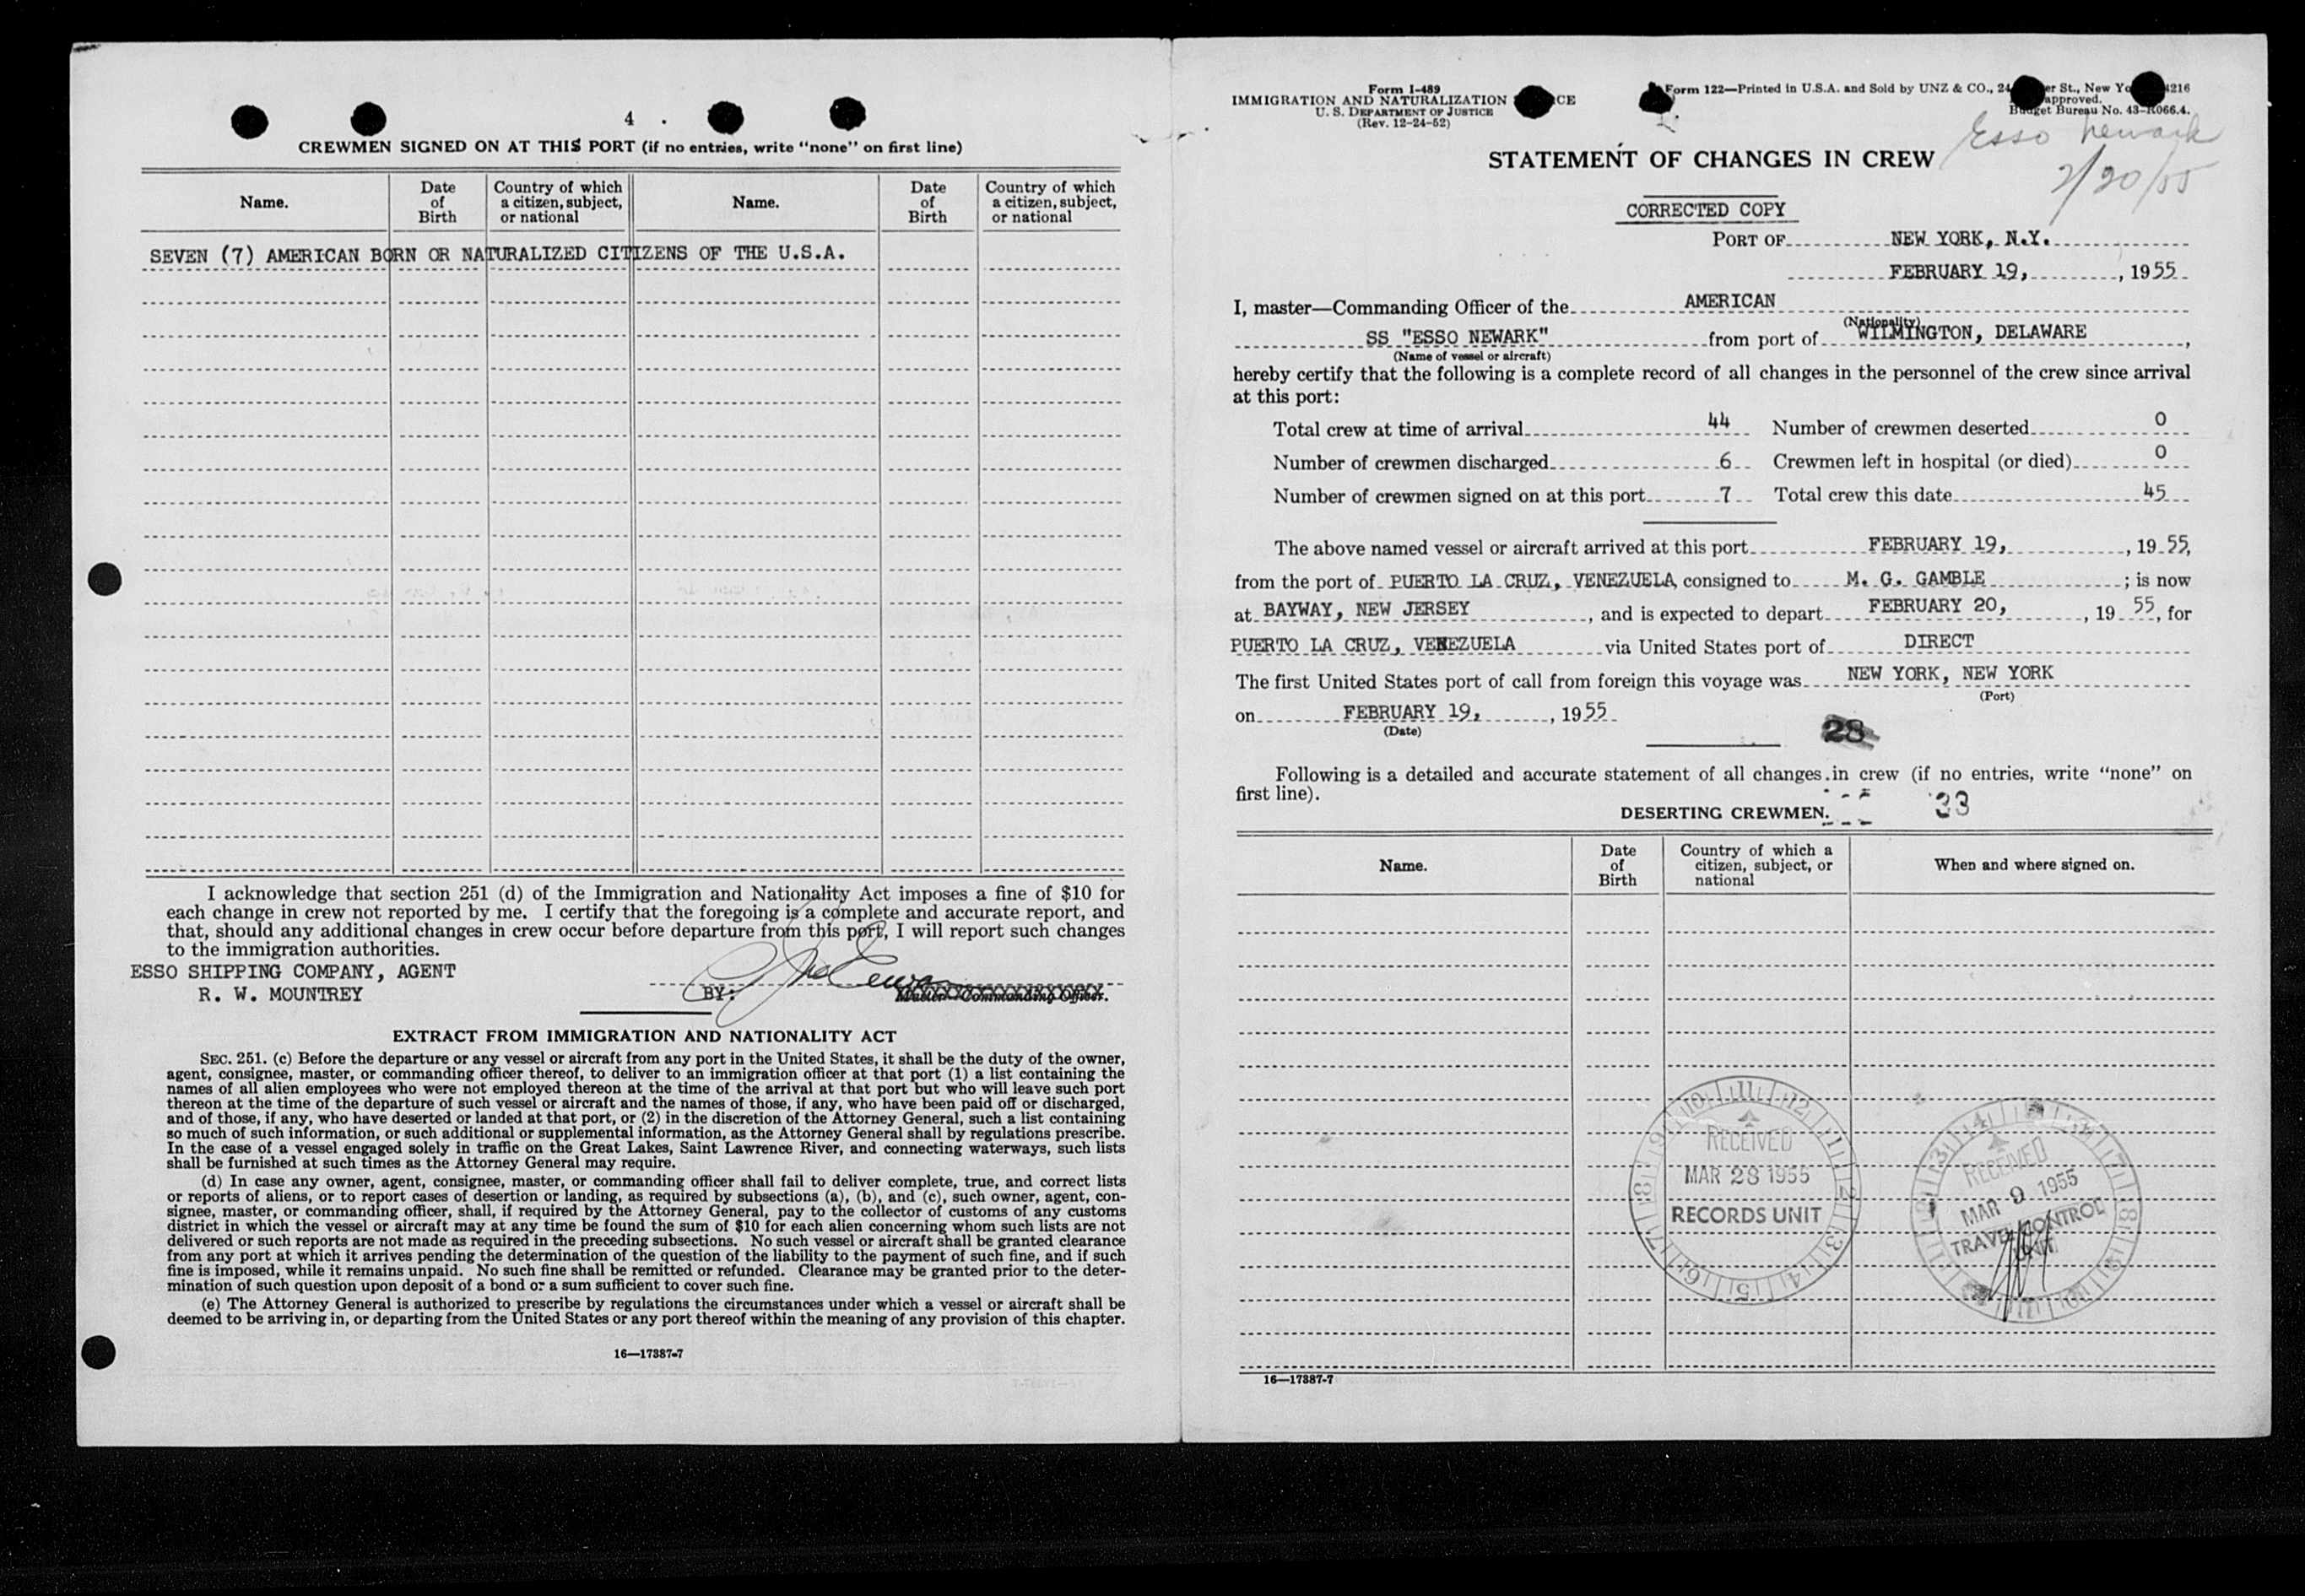 4
CREWMEN SIGNED ON AT THIS PORT (if no entries, write "none" on first line)
Name. Date of Birth Country of which a citizen, subject, or national Name. Date of Birth Country of which a citizen, subject, or national
SEVEN (7) AMERICAN BORN OR NATURALIZED CITIZENS OF THE U.S.A.
I acknowledge that section 251 (d) of the Immigration and Nationality Act imposes a fine of $10 for
each change in crew not reported by me. I certify that the foregoing is a complete and accurate report, and
that, should any additional changes in crew occur before departure from this port, I will report such changes
to the immigration authorities.
ESSO SHIPPING COMPANY, AGENT
R. W. MOUNTREY
BY:
Master—Commanding Officer.
EXTRACT FROM IMMIGRATION AND NATIONALITY ACT
SEC. 251. (c) Before the departure or any vessel or aircraft from any port in the United States, it shall be the duty of the owner,
agent, consignee, master, or commanding officer thereof, to deliver to an immigration officer at that port (1) a list containing the
names of all alien employees who were not employed thereon at the time of the arrival at that port but who will leave such port
thereon at the time of the departure of such vessel or aircraft and the names of those, if any, who have been paid off or discharged,
and of those, if any, who have deserted or landed at that port, or (2) in the discretion of the Attorney General, such a list containing
so much of such information, or such additional or supplemental information, as the Attorney General shall by regulations prescribe.
In the case of a vessel engaged solely in traffic on the Great Lakes, Saint Lawrence River, and connecting waterways, such lists
shall be furnished at such times as the Attorney General may require.
(d) In case any owner, agent, consignee, master, or commanding officer shall fail to deliver complete, true, and correct lists
or reports of aliens, or to report cases of desertion or landing, as required by subsections (a), (b), and (c), such owner, agent, con-
signee, master, or commanding officer, shall, if required by the Attorney General, pay to the collector of customs of any customs
district in which the vessel or aircraft may at any time be found the sum of $10 for each alien concerning whom such lists are not
delivered or such reports are not made as required in the preceding subsections. No such vessel or aircraft shall be granted clearance
from any port at which it arrives pending the determination of the question of the liability to the payment of such fine, and if such
fine is imposed, while it remains unpaid. No such fine shall be remitted or refunded. Clearance may be granted prior to the deter-
mination of such question upon deposit of a bond or a sum sufficient to cover such fine.
(e) The Attorney General is authorized to prescribe by regulations the circumstances under which a vessel or aircraft shall be
deemed to be arriving in, or departing from the United States or any port thereof within the meaning of any provision of this chapter.
16—17387-7
Form I-489
IMMIGRATION AND NATURALIZATION
U. S. DEPARTMENT OF JUSTICE
(Rev. 12-24-52)
Form 122—Printed in U.S.A. and Sold by UNZ & CO., 24 St., New
approved.
Budget Bureau No. 43-R066.4.
Esso Newark
2/20/55
STATEMENT OF CHANGES IN CREW
CORRECTED COPY
PORT OF NEW YORK, N.Y.
FEBRUARY 19, , 1955
I, master—Commanding Officer of the AMERICAN
(Nationality)
SS "ESSO NEWARK" from port of WILMINGTON, DELAWARE ,
(Name of vessel or aircraft)
hereby certify that the following is a complete record of all changes in the personnel of the crew since arrival
at this port:
Total crew at time of arrival 44 Number of crewmen deserted 0
Number of crewmen discharged 6 Crewmen left in hospital (or died) 0
Number of crewmen signed on at this port 7 Total crew this date 45
The above named vessel or aircraft arrived at this port FEBRUARY 19, , 19 55,
from the port of PUERTO LA CRUZ, VENEZUELA, consigned to M. G. GAMBLE ; is now
at BAYWAY, NEW JERSEY , and is expected to depart FEBRUARY 20, , 19 55, for
PUERTO LA CRUZ, VENEZUELA via United States port of DIRECT
The first United States port of call from foreign this voyage was NEW YORK, NEW YORK
(Port)
on FEBRUARY 19, , 1955
(Date)
28
Following is a detailed and accurate statement of all changes in crew (if no entries, write "none" on
first line).
DESERTING CREWMEN.
33
Name. Date of Birth Country of which a citizen, subject, or national When and where signed on.
RECEIVED
MAR 28 1955
RECORDS UNIT
RECEIVED
MAR 9 1955
TRAVEL CONTROL
UNIT
16—17387-7